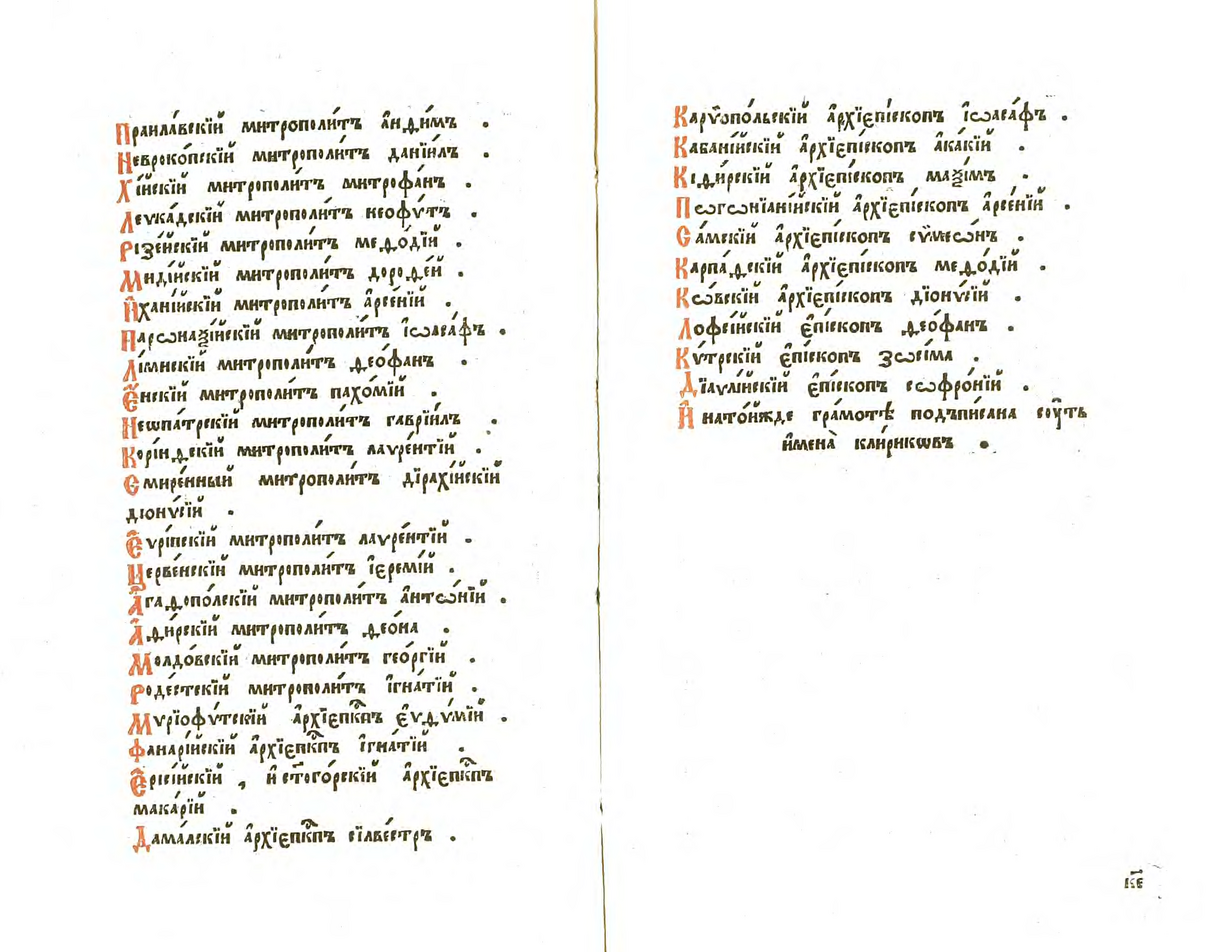 Праила́вскїй митрополи́тъ а҆нѳи́мъ .
Неврокопскїй митрополи́тъ данїи́лъ .
Хі́йскїй митрополи́тъ митрофа́нъ .
Леѵка́дскїй митрополи́тъ неофѵ́тъ .
Ризе́йскїй митрополи́тъ меѳо́дїй .
Миді́йскїй митрополи́тъ дороѳе́й .
И҆хані́йскїй митрополи́тъ а҆рсе́нїй .
Парѡнаѯі́йскїй митрополи́тъ і҆ѡаса́фъ .
Лі́мнскїй митрополи́тъ ѳео́фанъ .
Є҆́нскїй митрополи́тъ пахо́мїй .
Неѡпа́трскїй митрополи́тъ гаврїи́лъ .
Корі́нѳскїй митрополи́тъ лаѵре́нтїй .
Смире́нный митрополи́тъ дїрахі́йскїй
дїонѵ́сїй .
Є҆ѵрі́пскїй митрополи́тъ лаѵре́нтїй .
Церве́нскїй митрополи́тъ і҆єремі́й .
А҆гаѳопо́лскїй митрополи́тъ а҆нтѡ́нїй .
А҆ѳи́рскїй митрополи́тъ ѳео́на .
Молдо́вскїй митрополи́тъ гео́ргїй .
Роде́стскїй митрополи́тъ і҆гна́тїй .
Мѵрїофѵ́тскїй а҆рхїєпⷭ҇кпъ є҆ѵѳѵ́мїй .
Фанарі́йскїй а҆рхїєпⷭ҇кпъ і҆гна́тїй .
Є҆рисі́йскїй , и҆ ст҃ого́рскїй а҆рхїєпⷭ҇кпъ
мака́рїй .
Дамалскїй а҆рхїєпⷭ҇кпъ сїлве́стръ .
Карѵопо́льскїй а҆рхїєпі́скопъ і҆ѡаса́фъ .
Кабані́йскїй а҆рхїєпі́скопъ а҆ка́кїй .
Кіѳи́рскїй а҆рхїєпі́скопъ маѯі́мъ .
Пѡгѡнїані́йскїй а҆рхїєпі́скопъ а҆рсе́нїй .
Са́мскїй а҆рхїєпі́скопъ сѵмеѡ́нъ .
Карпа́ѳскїй а҆рхїєпі́скопъ меѳо́дїй .
Кѡ́вскїй а҆рхїєпі́скопъ дїонѵ́сїй .
Лофе́йскїй є҆пі́скопъ ѳео́фанъ .
Кѵ́трскїй є҆пі́скопъ зѡсі́ма .
Дїаѵлі́йскїй є҆пі́скопъ сѡфро́нїй .
И҆ на то́йжде гра́мотѣ подъпи́сана сꙋ́ть
и҆мена̀ кли́рикѡвъ .
к҃є